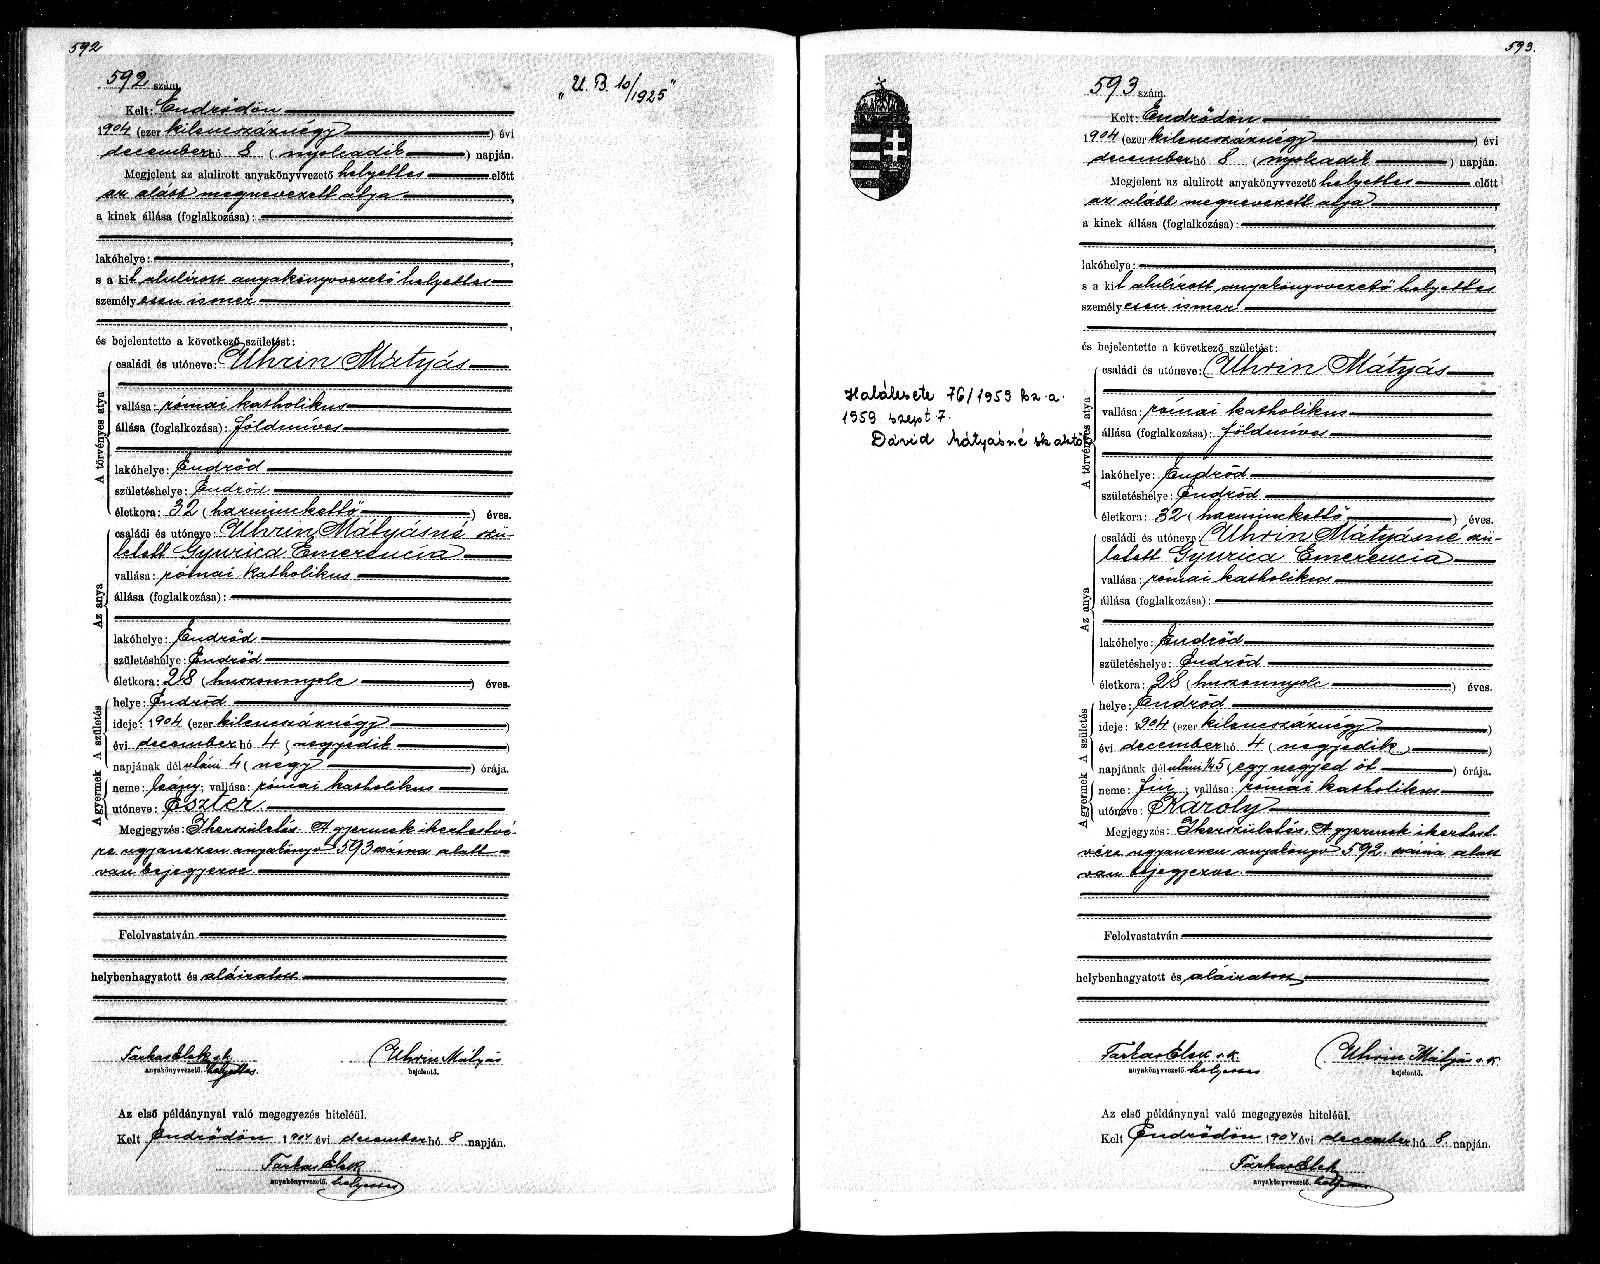 592
592 szám.
„U. B. 10/1925"
Kelt: Endrődön
1904 (ezer kilencszáznégy) évi
december hó 8 (nyolcadik) napján.
Megjelent az alulirott anyakönyvvezető helyettes előtt
az alább megnevezett atya,
a kinek állása (foglalkozása):
lakóhelye:
s a kit alulírott anyakönyvvezető helyettes
személyesen ismer
és bejelentette a következő születést:
A törvényes atya
családi és utóneve: Uhrin Mátyás
vallása: római katholikus
állása (foglalkozása): földmíves
lakóhelye: Endrőd
születéshelye: Endrőd
életkora: 32 (harminckettő) éves.
Az anya
családi és utóneve: Uhrin Mátyásné szü-
letett Gyurica Emerencia
vallása: római katholikus
állása (foglalkozása):
lakóhelye: Endrőd
születéshelye: Endrőd
életkora: 28 (huszonnyolc) éves.
A születés
helye: Endrőd
ideje: 1904 (ezer kilencszáznégy)
évi december hó 4 (negyedik)
napjának délutáni 4 (négy) órája.
A gyermek
neme: leány; vallása: római katholikus
utóneve: Eszter
Megjegyzés: Ikerszületés. A gyermek ikertestvé-
re ugyanezen anyakönyv 593 száma alatt
van bejegyezve.
Felolvastatván
helybenhagyatott és aláíratott
Farkas Elek sk. Uhrin Mátyás
anyakönyvvezető. helyettes bejelentő.
Az első példánynyal való megegyezés hiteléül.
Kelt Endrődön 1904 évi december hó 8 napján.
Farkas Elek
anyakönyvvezető. helyettes
593.
593 szám.
Kelt: Endrődön
1904 (ezer kilencszáznégy) évi
december hó 8 (nyolcadik) napján.
Megjelent az alulirott anyakönyvvezető helyettes előtt
az alább megnevezett atya,
a kinek állása (foglalkozása):
lakóhelye:
s a kit alulírott anyakönyvvezető helyettes
személyesen ismer
és bejelentette a következő születést:
A törvényes atya
családi és utóneve: Uhrin Mátyás
vallása: római katholikus
állása (foglalkozása): földmíves
lakóhelye: Endrőd
születéshelye: Endrőd
életkora: 32 (harminckettő) éves.
Halálesete 76/1959 hz. a.
1959 szept 7.
Dávid Mátyásné sk aktő
Az anya
családi és utóneve: Uhrin Mátyásné szü-
letett Gyurica Emerencia
vallása: római katholikus
állása (foglalkozása):
lakóhelye: Endrőd
születéshelye: Endrőd
életkora: 28 (huszonnyolc) éves.
A születés
helye: Endrőd
ideje: 1904 (ezer kilencszáznégy)
évi december hó 4 (negyedik)
napjának délutáni ¼5 (egy negyed öt) órája.
A gyermek
neme: fiú; vallása: római katholikus
utóneve: Károly
Megjegyzés: Ikerszületés. A gyermek ikertest-
vére ugyanezen anyakönyv 592 száma alatt
van bejegyezve.
Felolvastatván
helybenhagyatott és aláíratott
Farkas Elek s.k. Uhrin Mátyás s.k.
anyakönyvvezető. helyettes bejelentő.
Az első példánynyal való megegyezés hiteléül.
Kelt Endrődön 1904 évi december hó 8. napján.
Farkas Elek
anyakönyvvezető. helyettes